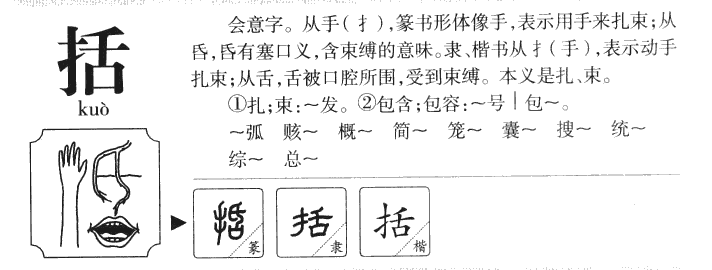 括
kuò
会意字。从手(扌),篆书形体像手,表示用手来扎束;从
昏,昏有塞口义,含束缚的意味。隶、楷书从扌(手),表示动手
扎束;从舌,舌被口腔所围,受到束缚。本义是扎、束。
①扎;束:~发。②包含;包容:~号|包~。
~弧 赅~ 概~ 简~ 笼~ 囊~ 搜~ 统~
综~ 总~
括 篆 括 隶 括 楷